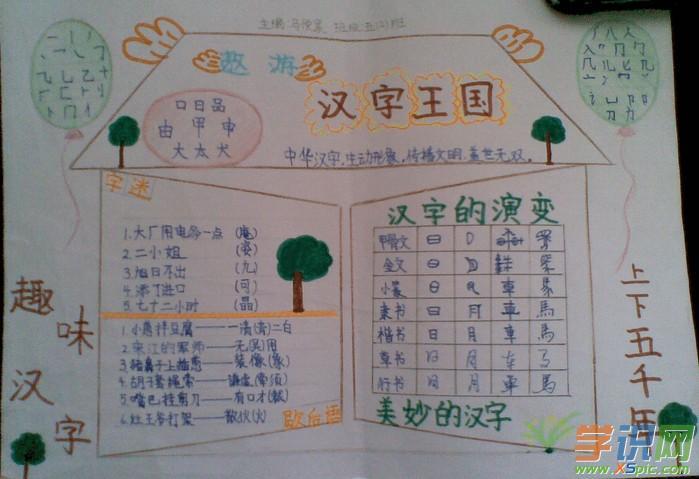 主编:马俊豪 班级:五(2)班
遨游
汉字王国
口日品
由甲申
大太犬
中华汉字,生动形象,传播文明,盖世无双。
字迷
1.大厂用电多一点 (庵)
2.二小姐 (姿)
3.旭日不出 (九)
4.添丁进口 (可)
5.七十二小时 (晶)
1.小葱拌豆腐——一清(青)二白
2.宋江的军师——无(吴)用
3.猪鼻子上插葱——装像(象)
4.胡子套绳索——谦虚(牵须)
5.嘴巴挂剪刀——有口才(裁)
6.灶王爷打架——散伙(火)
歇后语
汉字的演变
甲骨文 日
金文
小篆 車 馬
隶书 日 月 車 馬
楷书 日 月 車 馬
草书 日 月
行书 日 月 車 馬
美妙的汉字
趣味汉字
上下五千年
学识网
www.XSpic.com